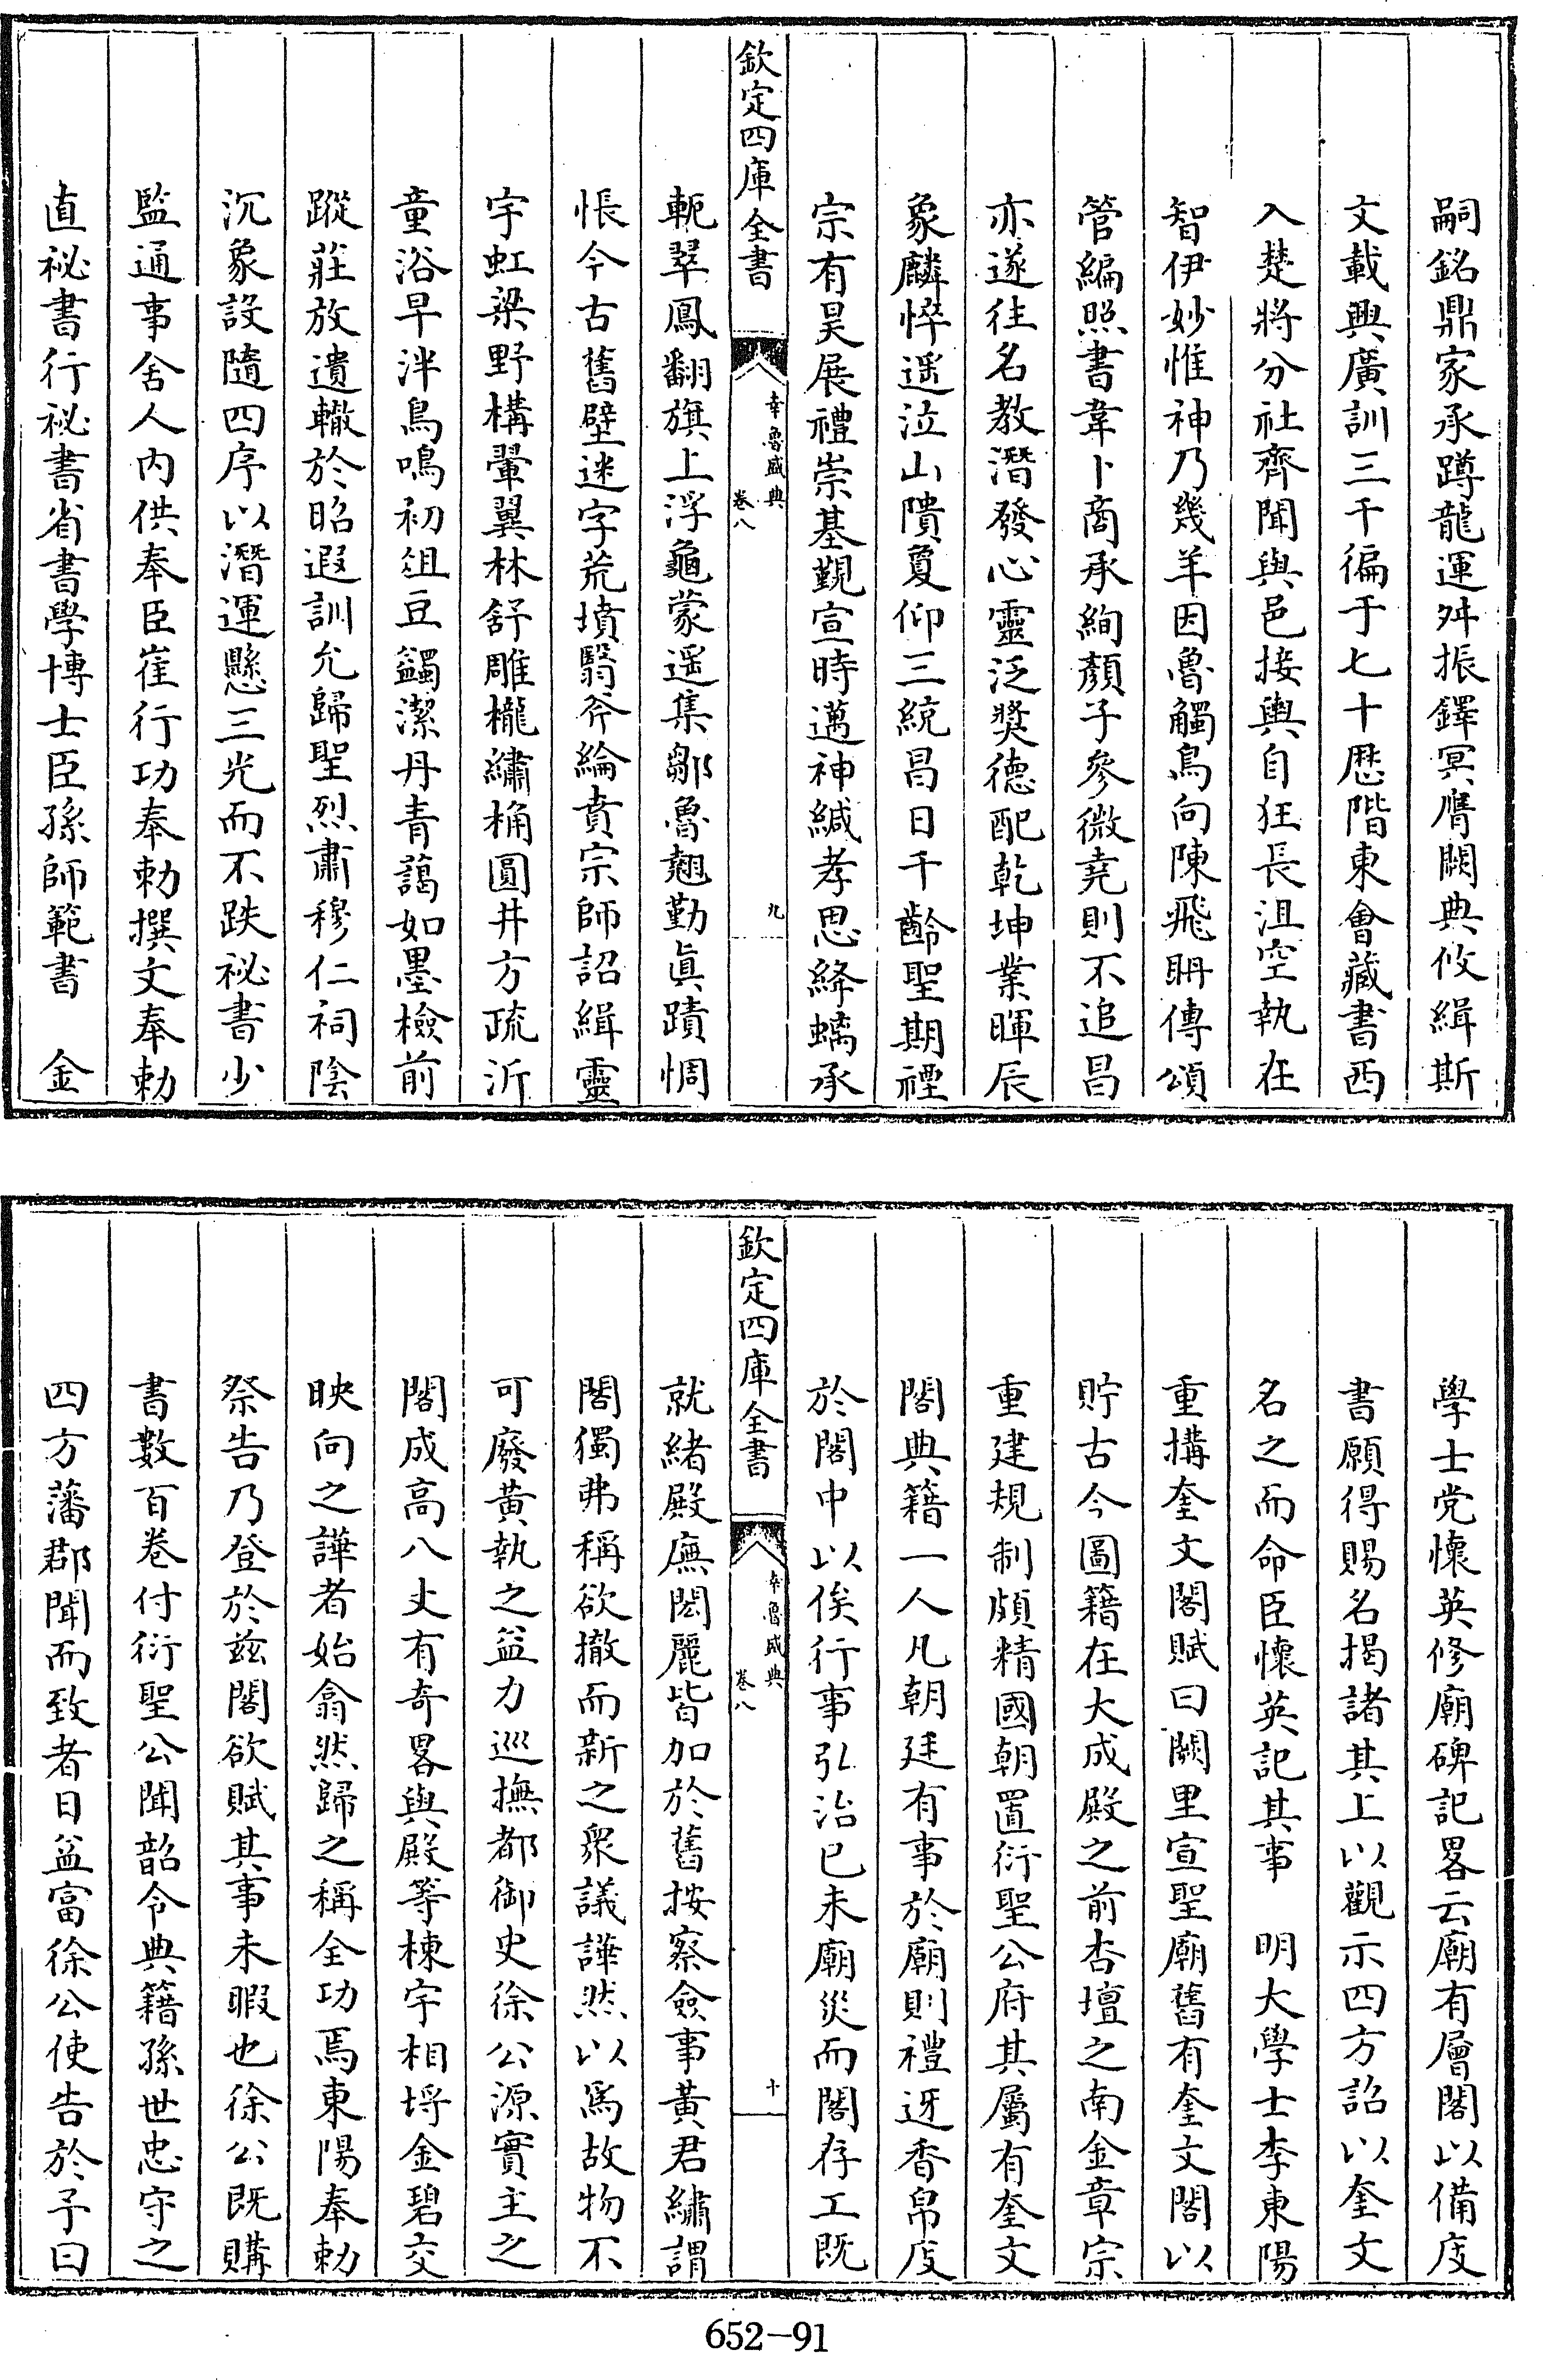 嗣銘鼎家承蹲龍運舛振鐸冥膺闕典攸緝斯
文載興廣訓三千徧于七十厯階東會藏書西
入楚將分社齊聞與邑接輿自狂長沮空執在
智伊妙惟神乃幾羊因魯觸鳥向陳飛聃傳頌
管編照書韋卜商承絢顏子參微堯則不追昌
亦遂往名教潛發心靈泛奬德配乾坤業暉辰
象麟悴遥泣山隤敻仰三統昌日千齡聖期禋
宗有昊展禮崇基覲宣時邁神緘孝思絳螭承
欽定四庫全書
幸魯盛典
卷八
九
軛翠鳳翻旗上浮龜蒙遥集鄒魯翹勤眞蹟惆
悵今古舊壁迷字荒墳翳斧綸賁宗師詔緝靈
宇虹梁野構翬翼林舒雕櫳繡桷圓井方疏沂
童浴早泮鳥鳴初俎豆蠲潔丹青藹如墨檢前
蹤莊放遺轍於昭遐訓允歸聖烈肅穆仁祠陰
沉象設隨四序以潛運懸三光而不跌祕書少
監通事舍人内供奉臣崔行功奉勅撰文奉勅
直祕書行祕書省書學博士臣孫師範書 金
學士党懷英修廟碑記畧云廟有層閣以備庋
書願得賜名揭諸其上以觀示四方詔以奎文
名之而命臣懷英記其事 明大學士李東陽
重搆奎文閣賦曰闕里宣聖廟舊有奎文閣以
貯古今圖籍在大成殿之前杏壇之南金章宗
重建規制頗精國朝置衍聖公府其屬有奎文
閣典籍一人凡朝廷有事於廟則禮迓香帛庋
於閣中以俟行事弘治己未廟災而閣存工既
欽定四庫全書
幸魯盛典
卷八
十
就緒殿廡閎麗皆加於舊按察僉事黄君繡謂
閣獨弗稱欲撤而新之衆議譁然以爲故物不
可廢黄執之益力巡撫都御史徐公源實主之
閣成高八丈有奇畧與殿等棟宇相埒金碧交
映向之譁者始翕然歸之稱全功焉東陽奉勅
祭告乃登於兹閣欲賦其事未暇也徐公既購
書數百卷付衍聖公聞韶令典籍孫世忠守之
四方藩郡聞而致者日益富徐公使告於予曰
652-91